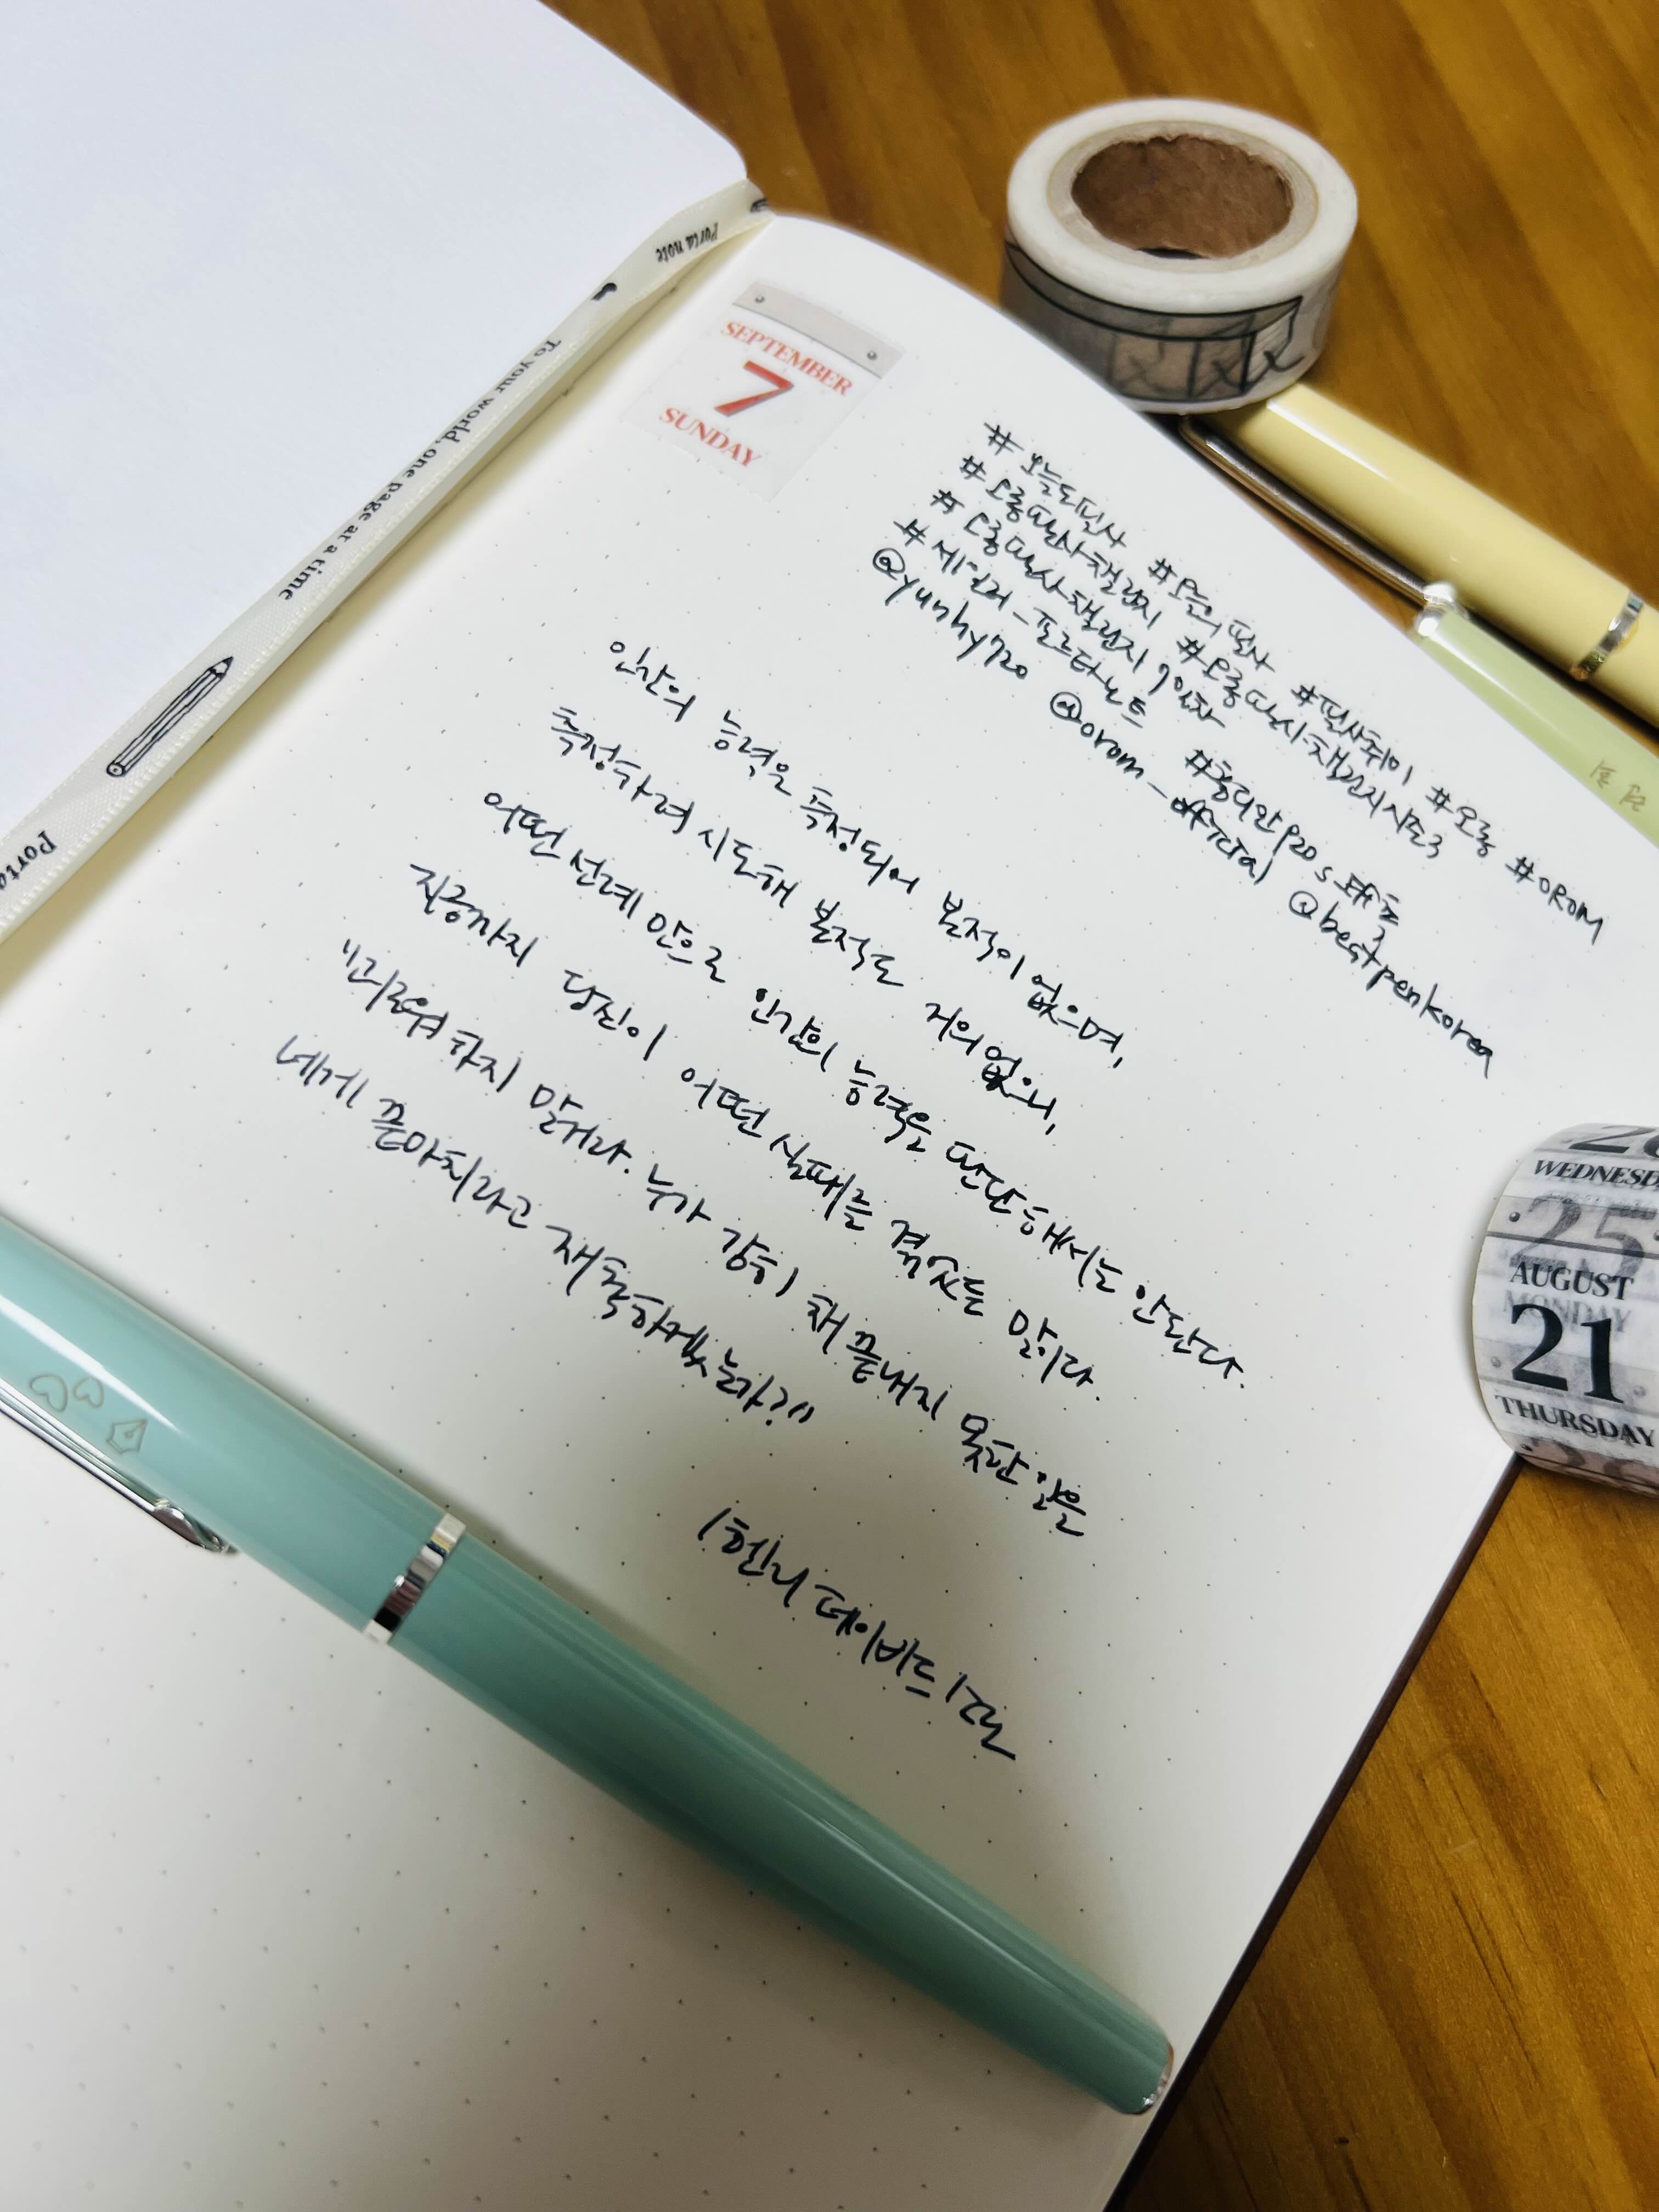 Porta note
To your world, one page at a time
Porta
SEPTEMBER
7
SUNDAY
#오늘도필사 #오늘의필사 #필사쥐이 #오롬 #OROM
#오롬필사챌린지 #오롬필사챌린지시즌3
#오롬필사챌린지 9일차
#세일러_포르타노트 #칭디안P20
@yunhy720 @orom_official @bestpenkorea
인간의 능력은 측정되어 본적이 없으며,
측정하려 시도해 본적도 거의 없으니,
어떤 선례 안으로 인간의 능력을 판단해서는 안된다.
지금까지 당신이 어떤 실패를 겪었든 말이다.
"괴로워 하지 말거라. 누가 감히 채 끝내지 못한 일을
네게 끝마치라고 재촉하겠는가?"
/헨리 데이비드 소로
WEDNESDA
25
AUGUST
MONDAY
21
THURSDAY